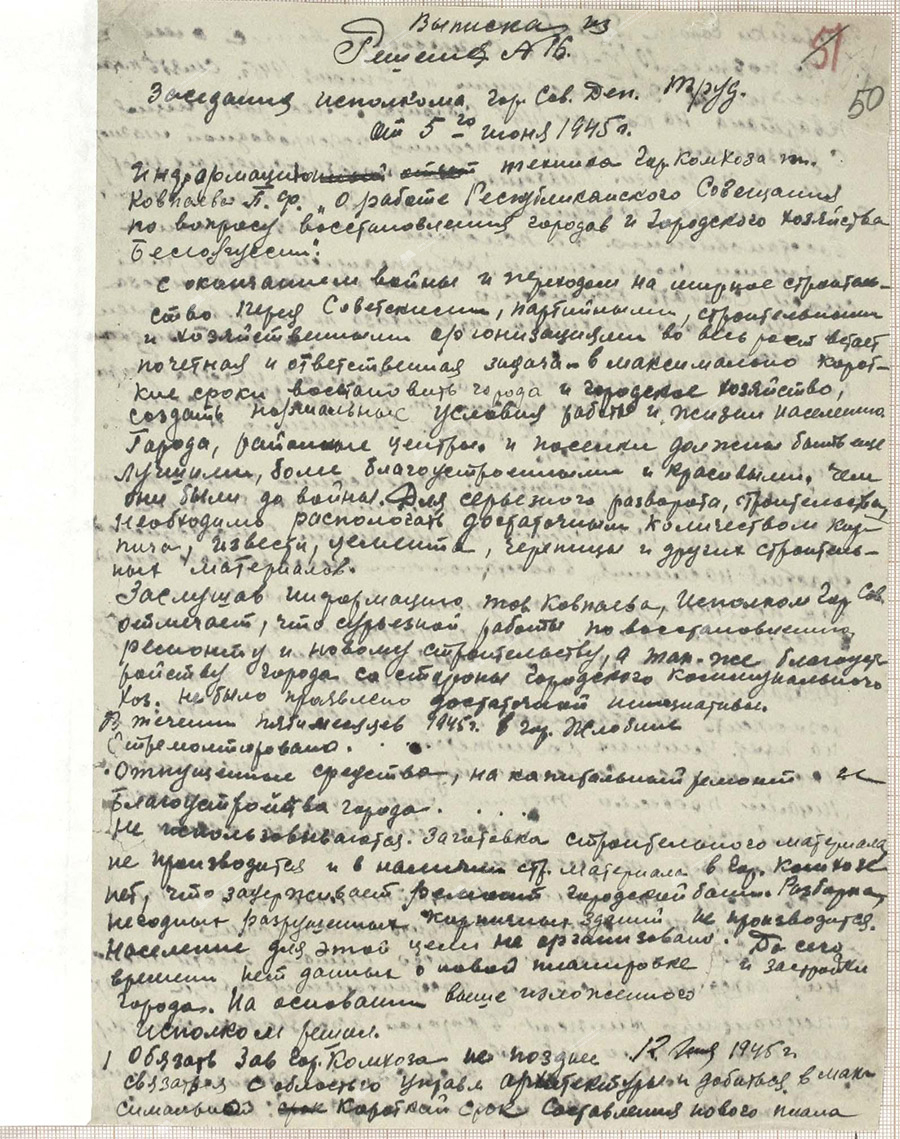 Выписка из
Решения № 16.
51
50
Заседания исполкома Гор. Сов. Деп. Труд.
От 5го июня 1945 г.
Информация техника Гор Комхоза т.
Ковпаева П. Ф. „О работе Республиканского Совещания
по вопросу восстановления городов и Городского хозяйства
Белоруссии".
С окончанием войны и переходом на мирное строитель-
ство перед Советскими, партийными, строительными
и хозяйственными организациями во весь рост встает
почетная и ответственная задача – в максимально корот-
кие сроки восстановить города и городское хозяйство,
создать нормальные условия работы и жизни населению
Города, районные центры и поселки должны быть еще
лучшими, более благоустроенными и красивыми. Чем
они были до войны. Для серьезного разворота, строительства
необходимо распологать достаточным количеством кир-
пича, извести, цемента, черепицы и других строитель-
ных материалов.
Заслушав информацию тов Ковпаева, Исполком Гор Сов.
отмечает, что серьезной работы по восстановлению
ремонту и новому строительству, а так-же благоуст-
ройству города со стороны Городского Коммунального
Хоз. не было проявлено достаточной инициативы.
В течении пяти месяцев 1945 г. в гор. Жлобине
Отремонтировано. . .
Отпущенные средства, на капитальный ремонт и
Благоустройства города. . . .
не использовываются. Заготовка строительного материала
не производится и в наличии стр. материала в Гор. Комхозе
нет, что задерживает ремонт городской бани. Разборка
негодных разрушенных кирпичных зданий не производится.
Население для этой цели не организовано. До сего
времени нет данных о новой планировке и застройки
города. На основании выше изложенного
Исполком решил.
1 Обязать Зав Гор. Комхоза не позднее 12 1945 г.
связаться с областью управл архитектуры и добиться в мак-
симально срок Короткий срок Составления нового плана